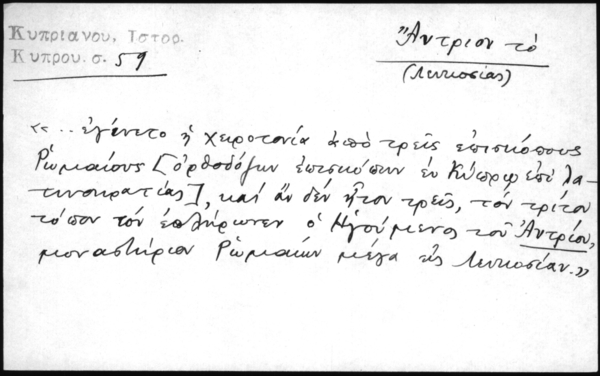 Κυπριανου, Ιστορ.
Κυπρου. σ. 59
Ἄντριον τὸ
(Λευκοσίας)
«.. ἐγένετο ἡ χειροτονία ἀπὸ τρεῖς ἐπισκόπους
Ῥωμαίους [ὀρθοδόξων ἐπισκόπων ἐν Κύπρῳ ἐπὶ λα-
τινοκρατίας], καὶ ἂν δὲν ἦτον τρεῖς, τὸν τρίτον
τόπον τὸν ἐπλήρωνεν ὁ Ἡγούμενος τοῦ Ἀντρίου,
μοναστήριον Ῥωμαίων μέγα εἰς Λευκοσίαν.»